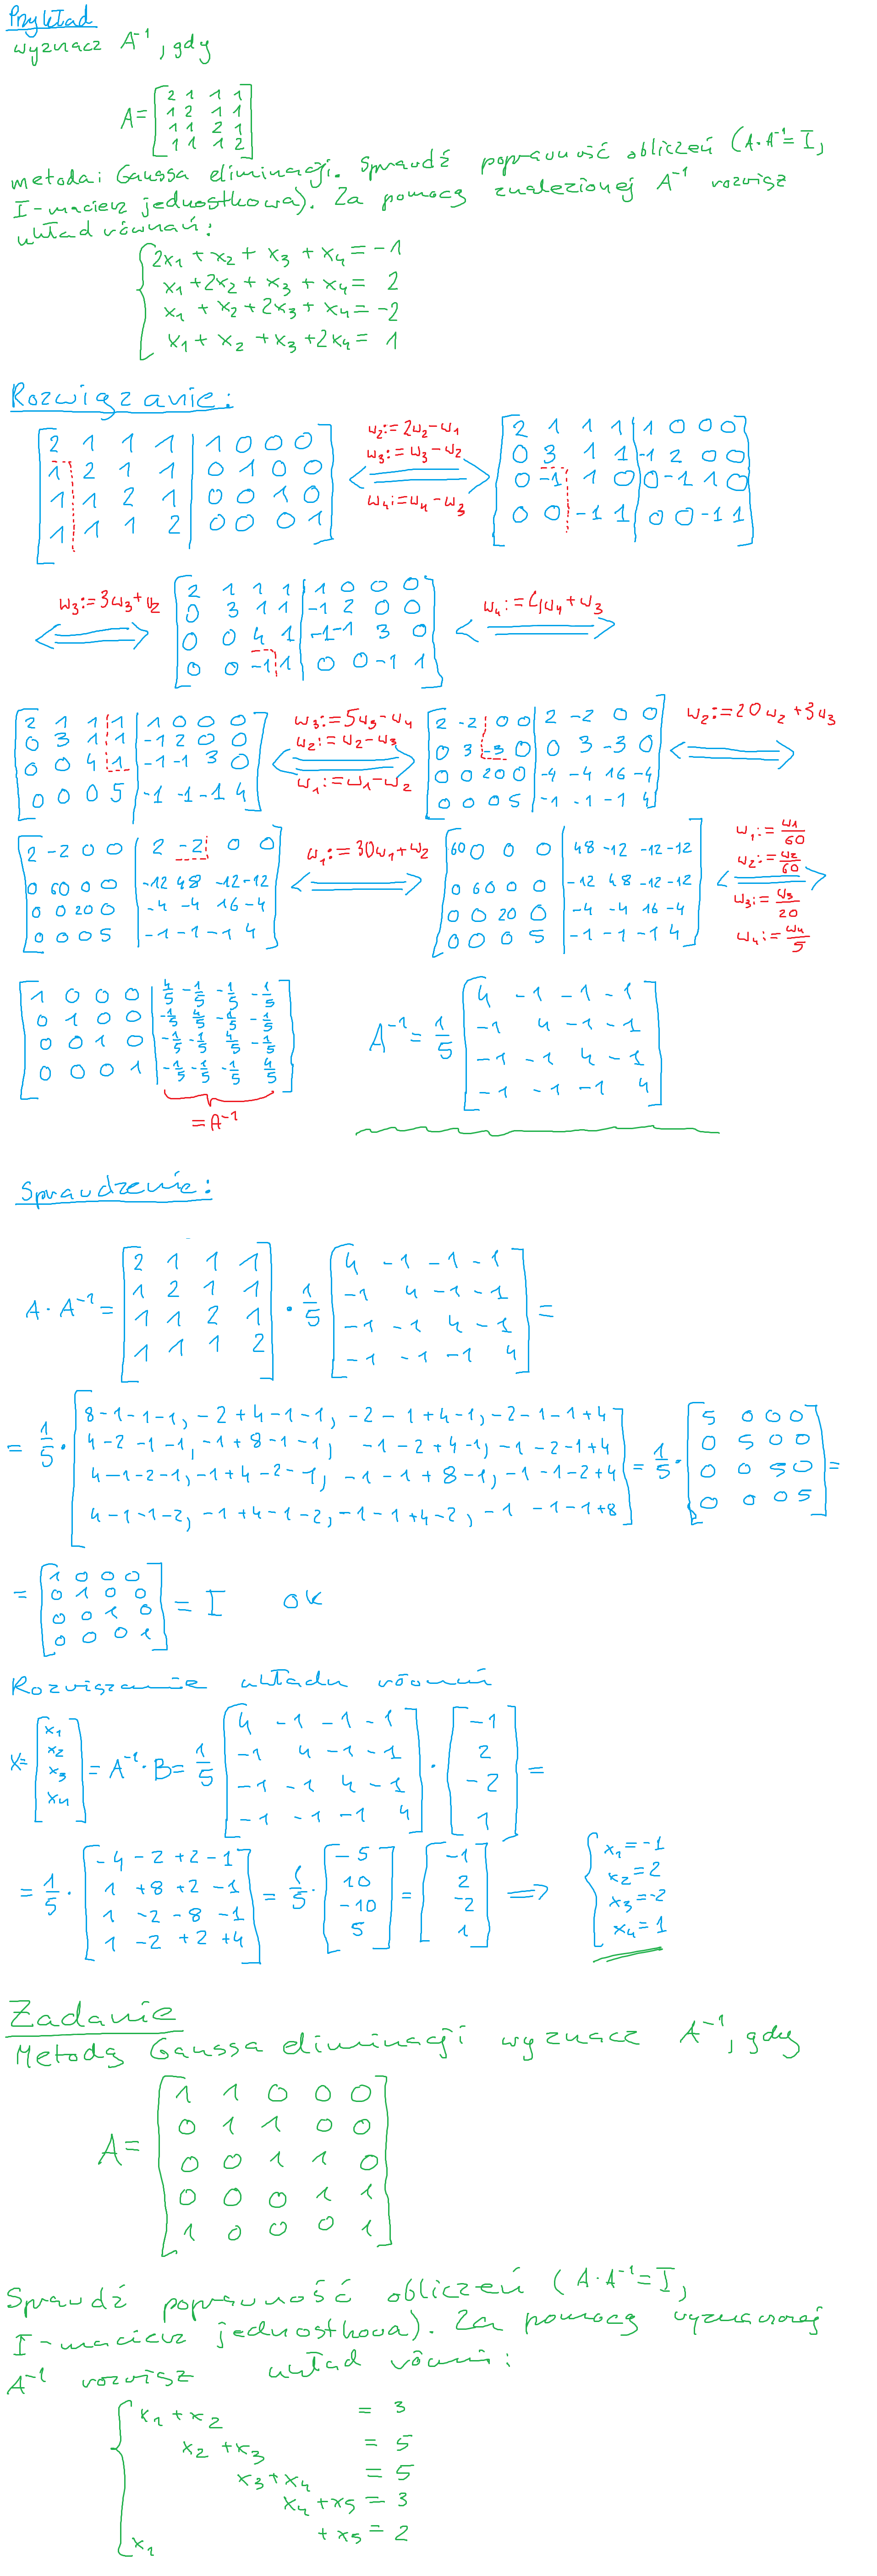 Przykład
wyznacz A⁻¹, gdy
A= [2 1 1 1
1 2 1 1
1 1 2 1
1 1 1 2]
metodą Gaussa eliminacji. Sprawdź poprawność obliczeń (A·A⁻¹=I,
I-macierz jednostkowa). Za pomocą znalezionej A⁻¹ rozwiąż
układ równań:
2x₁ + x₂ + x₃ + x₄ = -1
x₁ + 2x₂ + x₃ + x₄ = 2
x₁ + x₂ + 2x₃ + x₄ = -2
x₁ + x₂ + x₃ + 2x₄ = 1
Rozwiązanie:
[2 1 1 1 | 1 0 0 0
1 2 1 1 | 0 1 0 0
1 1 2 1 | 0 0 1 0
1 1 1 2 | 0 0 0 1]
w₂:=2w₂-w₁
w₃:=w₃-w₂
w₄:=w₄-w₃
[2 1 1 1 | 1 0 0 0
0 3 1 1 | -1 2 0 0
0 -1 1 0 | 0 -1 1 0
0 0 -1 1 | 0 0 -1 1]
w₃:=3w₃+w₂
[2 1 1 1 | 1 0 0 0
0 3 1 1 | -1 2 0 0
0 0 4 1 | -1 -1 3 0
0 0 -1 1 | 0 0 -1 1]
w₄:=4w₄+w₃
[2 1 1 1 | 1 0 0 0
0 3 1 1 | -1 2 0 0
0 0 4 1 | -1 -1 3 0
0 0 0 5 | -1 -1 -1 4]
w₃:=5w₃-w₄
w₂:=w₂-w₃
w₁:=w₁-w₂
[2 -2 0 0 | 2 -2 0 0
0 3 -3 0 | 0 3 -3 0
0 0 20 0 | -4 -4 16 -4
0 0 0 5 | -1 -1 -1 4]
w₂:=20w₂+3w₃
[2 -2 0 0 | 2 -2 0 0
0 60 0 0 | -12 48 -12 -12
0 0 20 0 | -4 -4 16 -4
0 0 0 5 | -1 -1 -1 4]
w₁:=30w₁+w₂
[60 0 0 0 | 48 -12 -12 -12
0 60 0 0 | -12 48 -12 -12
0 0 20 0 | -4 -4 16 -4
0 0 0 5 | -1 -1 -1 4]
w₁:=w₁/60
w₂:=w₂/60
w₃:=w₃/20
w₄:=w₄/5
[1 0 0 0 | 4/5 -1/5 -1/5 -1/5
0 1 0 0 | -1/5 4/5 -1/5 -1/5
0 0 1 0 | -1/5 -1/5 4/5 -1/5
0 0 0 1 | -1/5 -1/5 -1/5 4/5]
=A⁻¹
A⁻¹= 1/5 [4 -1 -1 -1
-1 4 -1 -1
-1 -1 4 -1
-1 -1 -1 4]
Sprawdzenie:
A·A⁻¹= [2 1 1 1
1 2 1 1
1 1 2 1
1 1 1 2] · 1/5 [4 -1 -1 -1
-1 4 -1 -1
-1 -1 4 -1
-1 -1 -1 4] =
= 1/5 · [8-1-1-1, -2+4-1-1, -2-1+4-1, -2-1-1+4
4-2-1-1, -1+8-1-1, -1-2+4-1, -1-2-1+4
4-1-2-1, -1+4-2-1, -1-1+8-1, -1-1-2+4
4-1-1-2, -1+4-1-2, -1-1+4-2, -1-1-1+8] = 1/5 · [5 0 0 0
0 5 0 0
0 0 5 0
0 0 0 5] =
= [1 0 0 0
0 1 0 0
0 0 1 0
0 0 0 1] = I ok
Rozwiązanie układu równań
X= [x₁
x₂
x₃
x₄] = A⁻¹·B= 1/5 [4 -1 -1 -1
-1 4 -1 -1
-1 -1 4 -1
-1 -1 -1 4] · [-1
2
-2
1] =
= 1/5 · [-4 -2 +2 -1
1 +8 +2 -1
1 -2 -8 -1
1 -2 +2 +4] = 1/5 · [-5
10
-10
5] = [-1
2
-2
1] ⇒
x₁=-1
x₂=2
x₃=-2
x₄=1
Zadanie
Metodą Gaussa eliminacji wyznacz A⁻¹, gdy
A= [1 1 0 0 0
0 1 1 0 0
0 0 1 1 0
0 0 0 1 1
1 0 0 0 1]
Sprawdź poprawność obliczeń (A·A⁻¹=I,
I-macierz jednostkowa). Za pomocą wyznaczonej
A⁻¹ rozwiąż układ równań:
x₁ + x₂ = 3
x₂ + x₃ = 5
x₃ + x₄ = 5
x₄ + x₅ = 3
x₁ + x₅ = 2